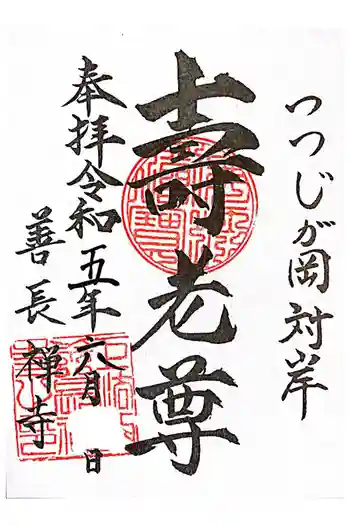 つつじが岡対岸
壽老尊
奉拝令和五年六月 日
善長禅寺